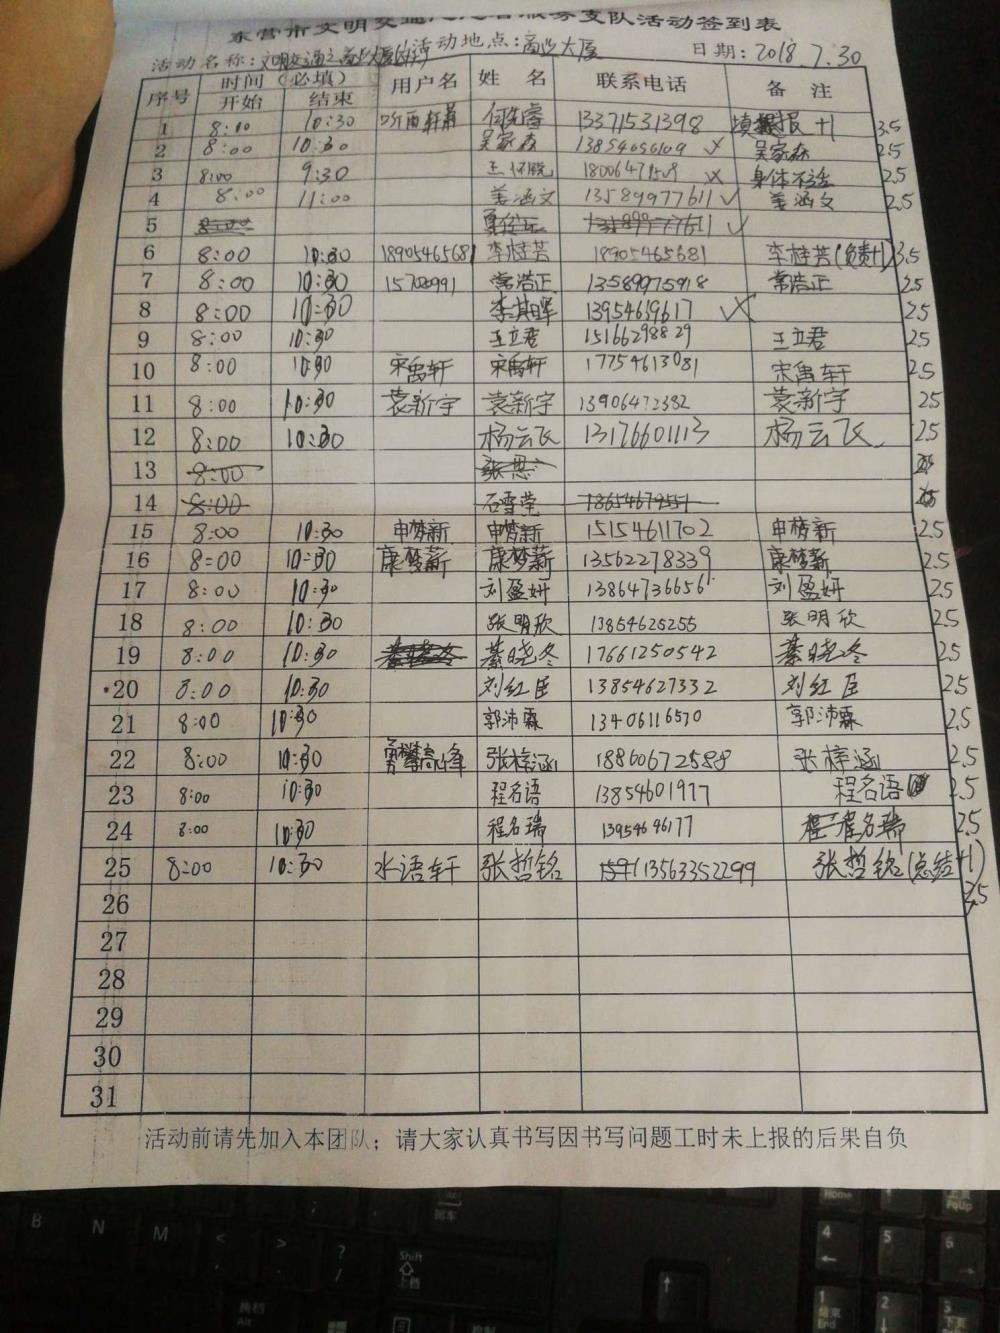 东营市文明交通志愿者服务支队活动签到表
活动名称: 文明交通之商业大厦 活动地点:商业大厦 日期:2018.7.30
序号 时间(必填) 用户名 姓名 联系电话 备注
开始 结束
1 8:00 10:30 13371531398 填报 +1 3.5
2 8:00 10:30 吴家森 吴家森 2.5
3 8:00 9:30 身体不适 2.5
4 8:00 11:00 姜涵文 13589977611 姜涵文 2.5
5
6 8:00 10:30 18905465681 李桂芳 18905465681 李桂芳(负责+1) 3.5
7 8:00 10:30 常浩正 13589975918 常浩正 2.5
8 8:00 10:30 李其晖 13954639617 2.5
9 8:00 10:30 王立君 15166298829 王立君 2.5
10 8:00 10:30 宋禹轩 宋禹轩 17754613081 宋禹轩 2.5
11 8:00 10:30 袁新宇 袁新宇 13906472382 袁新宇 2.5
12 8:00 10:30 杨云飞 13176601113 杨云飞 2.5
13 8:00
14 8:00 石雪莹 18654679551
15 8:00 10:30 申梦新 申梦新 15154611702 申梦新 2.5
16 8:00 10:30 康梦薪 康梦薪 13562278339 康梦薪 2.5
17 8:00 10:30 刘盈妍 13864736656 刘盈妍 2.5
18 8:00 10:30 张明欣 13854625255 张明欣 2.5
19 8:00 10:30 綦晓冬 17661250542 綦晓冬 2.5
20 8:00 10:30 刘红臣 13854627332 刘红臣 2.5
21 8:00 10:30 郭沛霖 13406116570 郭沛霖 2.5
22 8:00 10:30 勇攀高峰 张梓涵 18860672588 张梓涵 2.5
23 8:00 10:30 程名语 13854601977 程名语 2.5
24 8:00 10:30 程名瑞 13954646177 程名瑞 2.5
25 8:00 10:30 水语轩 张哲铭 13563352299 张哲铭(总结+1) 3.5
26
27
28
29
30
31
活动前请先加入本团队；请大家认真书写因书写问题工时未上报的后果自负
B N M < > ? /
Shift 上档
回车
换档 Alt
Home
PgUp
4 5 6
1 End 2 3